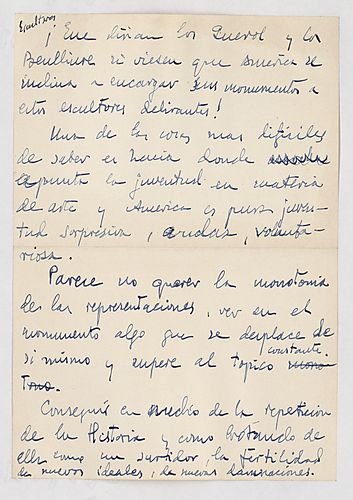 Escultores
¡Que dirian los Querol y los
Benlliure si viesen que America se
inclina a encargar sus monumentos a
estos escultores delirantes!
Una de las cosas mas dificiles
de saber es hacia donde
apunta la juventud en materia
de arte y America es pura juven-
tud sorpresiva, audaz, volunta-
riosa.
Parece no querer la monotonia
de las representaciones, ver en el
monumento algo que se desplace de
si mismo y supere al topico constante
Conseguir en medio de la repeticion
de la Historia y como brotando de
ella como un surtidor, la fertilidad
de nuevos ideales, de nuevas